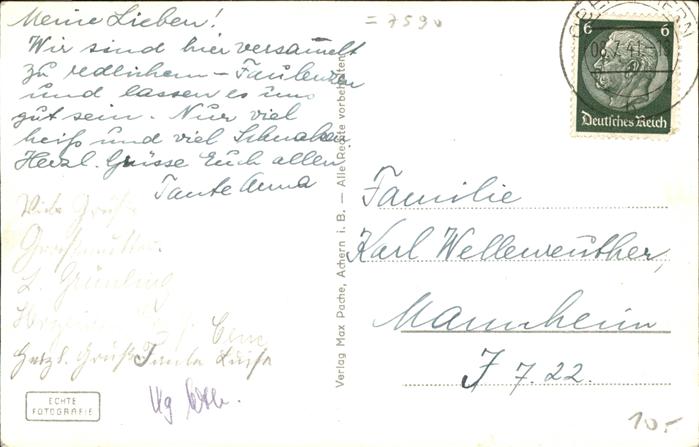 Meine Lieben!
Wir sind hier versammelt
zu redlichem - Faulenzen
und lassen es uns
gut sein. Nur viel
heiß und viel Schnaken
Herzl. Grüsse Euch allen
Tante Anna
Viele Grüße
Großmutter
L. Gründling
Herzl. Grüße Tante Luise
ECHTE
FOTOGRAFIE
Verlag Max Pache, Achern i. B. — Alle Rechte vorbehalten
= 7590
08.7.41.-18
6 6
Deutsches Reich
Familie
Karl Welleweuther,
Mannheim
J 7.22.
10.-